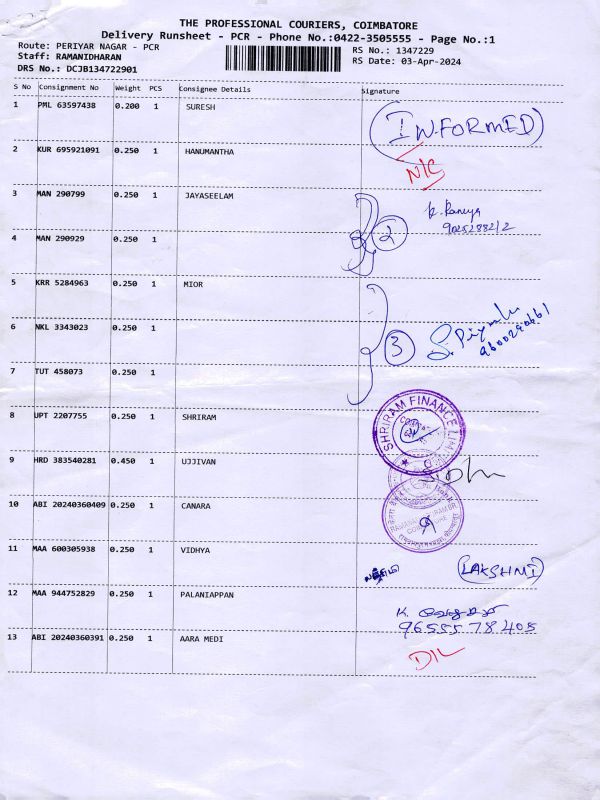 THE PROFESSIONAL COURIERS, COIMBATORE
Delivery Runsheet - PCR - Phone No.:0422-3505555 - Page No.:1
Route: PERIYAR NAGAR - PCR
RS No.: 1347229
Staff: RAMANIDHARAN
RS Date: 03-Apr-2024
DRS No.: DCJB134722901
S No Consignment No Weight PCS Consignee Details Signature
1 PML 63597438 0.200 1 SURESH
(INFORMED)
2 KUR 695921091 0.250 1 HANUMANTHA
N/C
3 MAN 290799 0.250 1 JAYASEELAM
2
4 MAN 290929 0.250 1
5 KRR 5284963 0.250 1 MIOR
6 NKL 3343023 0.250 1
3
9600290661
7 TUT 458073 0.250 1
8 UPT 2207755 0.250 1 SHRIRAM
SHRIRAM FINANCE
9 HRD 383540281 0.450 1 UJJIVAN
10 ABI 20240360409 0.250 1 CANARA
11 MAA 600305938 0.250 1 VIDHYA
லக்ஷ்மி (LAKSHMI)
12 MAA 944752829 0.250 1 PALANIAPPAN
K.
96555 78405
13 ABI 20240360391 0.250 1 AARA MEDI
D/L